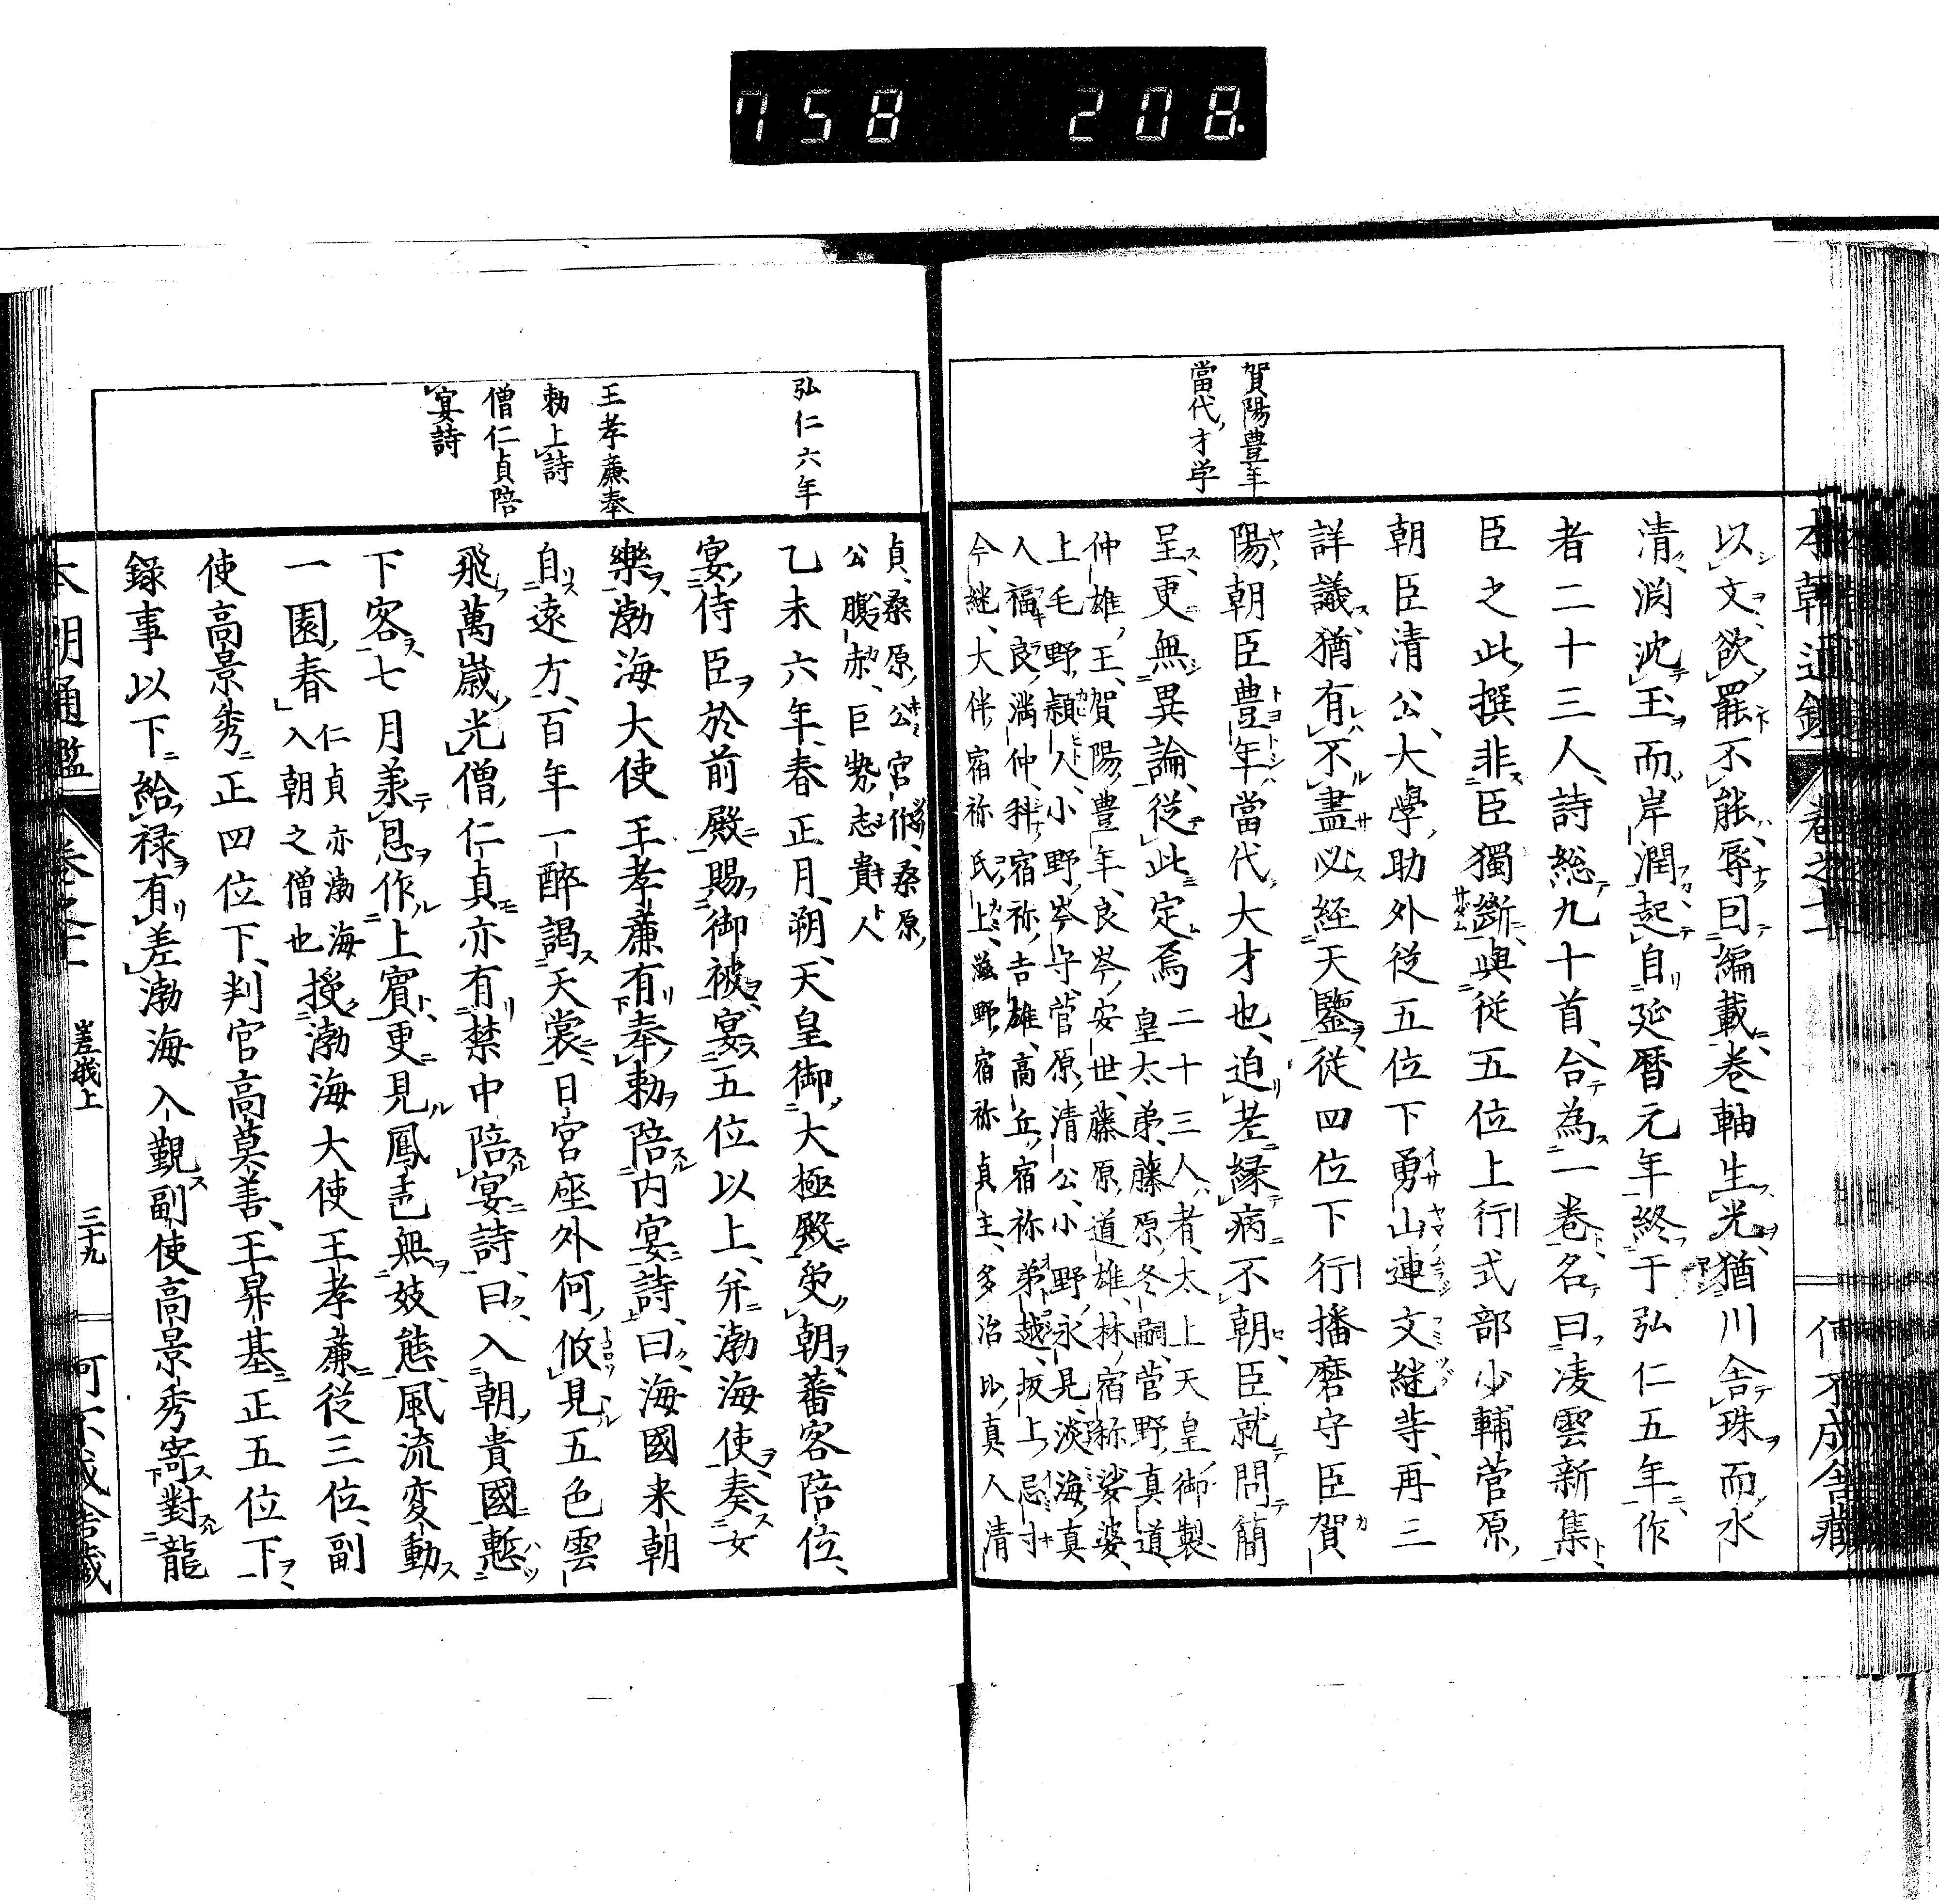 758 208
本朝通鑑 卷之十
何不成舎藏
賀陽豊年
當代才学
以文欲罷不能辱曰編載卷軸生光猶川舎珠而水
清渕沈玉而岸潤起自延暦元年終于弘仁五年作
者二十三人詩総九十首合為一巻名曰凌雲新集
臣之此撰非臣獨斷與従五位上行式部少輔菅原
朝臣清公大學助外従五位下勇山連文継等再三
詳議猶有不盡必経天鑒従四位下行播磨守臣賀
陽朝臣豊年當代大才也迫老縁病不朝臣就問簡
呈更無異論従此定焉 二十三人者太上天皇御製
皇太弟藤原冬嗣菅野真道
仲雄王賀陽豊年良岑安世藤原道雄林宿祢娑婆
上毛野頴人小野岑守菅原清公小野永見淡海真
人福良満仲科宿祢吉雄高丘宿祢弟越坂上忌寸
今継大伴宿祢氏上滋野宿祢貞主多治比真人清
貞桑原公宮作桑原
公腹赤巨勢志貴人
弘仁六年
王孝廉奉
勅上詩
僧仁貞陪
宴詩
乙未六年春正月朔天皇御大極殿受朝蕃客陪位
宴侍臣於前殿賜御被宴五位以上并渤海使奏女
樂渤海大使王孝廉有奉勅陪内宴詩曰海國来朝
自遠方百年一醉謁天裳日宮座外何攸見五色雲
飛萬歳光僧仁貞亦有禁中陪宴詩曰入朝貴國慙
下客七月羕恩作上賓更見鳳㐌無妓態風流変動
一園春 仁貞亦渤海
入朝之僧也 授渤海大使王孝廉従三位副
使高景秀正四位下判官高莫善王昇基正五位下
録事以下給禄有差渤海入覲副使高景秀寄對龍
本朝通鑑 卷之十
嵯峨上 三十九
何不成舎藏